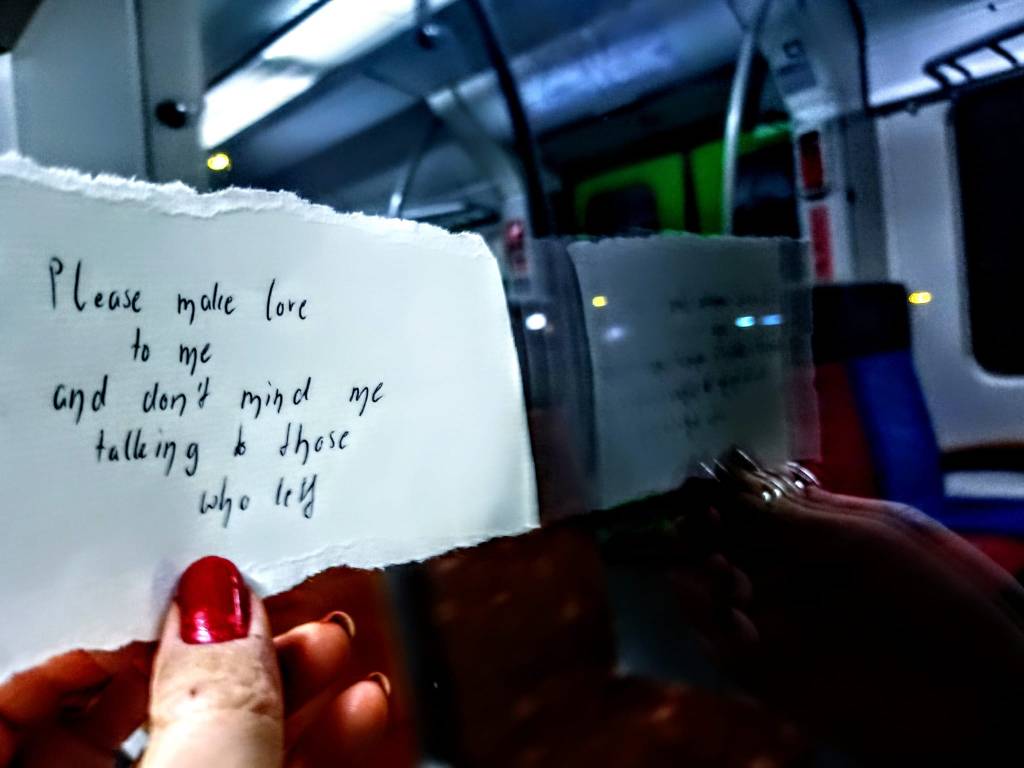 Please make love
to me
and don't mind me
talking to those
who left